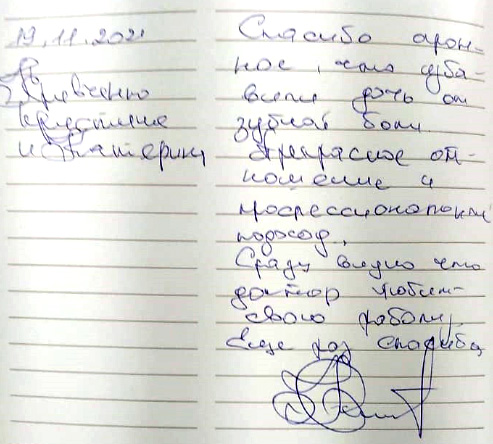 19.11.2021
Кравченко
Кристине
и Екатерине
Спасибо огром-
ное, что изба-
вили дочь от
зубной боли.
Прекрасное от-
ношение и
профессиональный
подход.
Сразу видно что
доктор любит
свою работу,
Еще раз спасибо